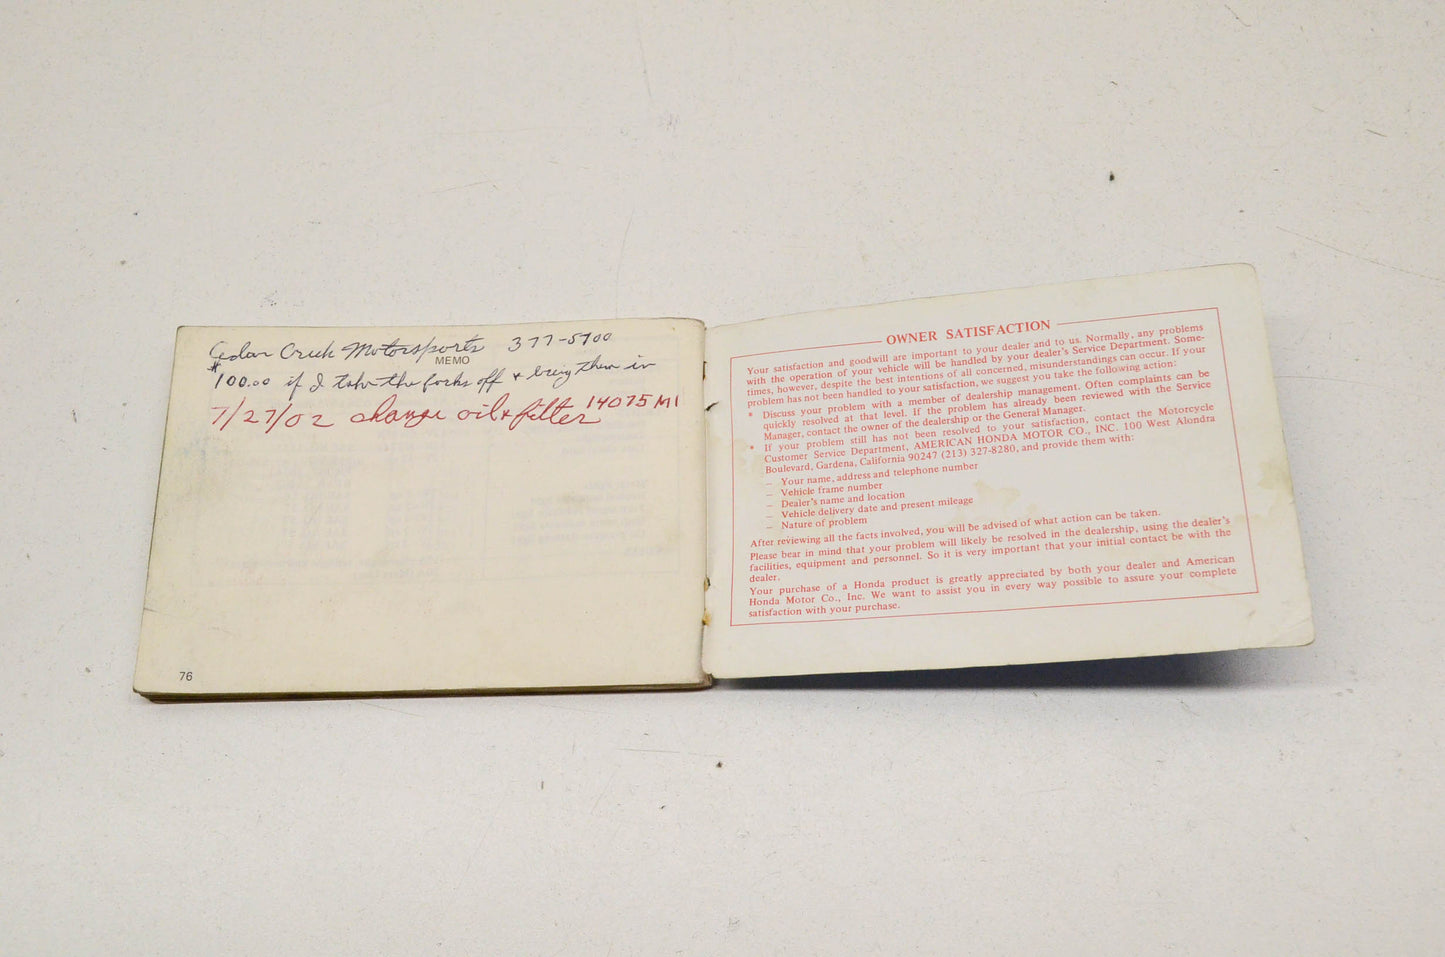 Cedar Creek Motorsports 377-5700
MEMO
$100.00 if I take the forks off & bring them in
7/27/02 change oil & filter 14075 MI
76
OWNER SATISFACTION
Your satisfaction and goodwill are important to your dealer and to us. Normally, any problems
with the operation of your vehicle will be handled by your dealer's Service Department. Some-
times, however, despite the best intentions of all concerned, misunderstandings can occur. If your
problem has not been handled to your satisfaction, we suggest you take the following action:
* Discuss your problem with a member of dealership management. Often complaints can be
quickly resolved at that level. If the problem has already been reviewed with the Service
Manager, contact the owner of the dealership or the General Manager.
* If your problem still has not been resolved to your satisfaction, contact the Motorcycle
Customer Service Department, AMERICAN HONDA MOTOR CO., INC. 100 West Alondra
Boulevard, Gardena, California 90247 (213) 327-8280, and provide them with:
– Your name, address and telephone number
– Vehicle frame number
– Dealer's name and location
– Vehicle delivery date and present mileage
– Nature of problem
After reviewing all the facts involved, you will be advised of what action can be taken.
Please bear in mind that your problem will likely be resolved in the dealership, using the dealer's
facilities, equipment and personnel. So it is very important that your initial contact be with the
dealer.
Your purchase of a Honda product is greatly appreciated by both your dealer and American
Honda Motor Co., Inc. We want to assist you in every way possible to assure your complete
satisfaction with your purchase.